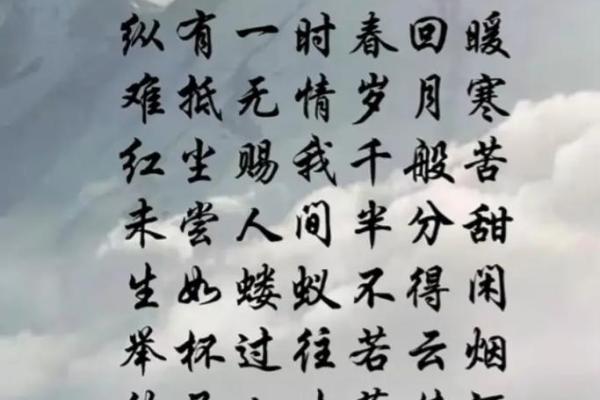 纵有一时春回暖
难抵无情岁月寒
红尘赐我千般苦
未尝人间半分甜
生如蝼蚁不得闲
举杯过往若云烟